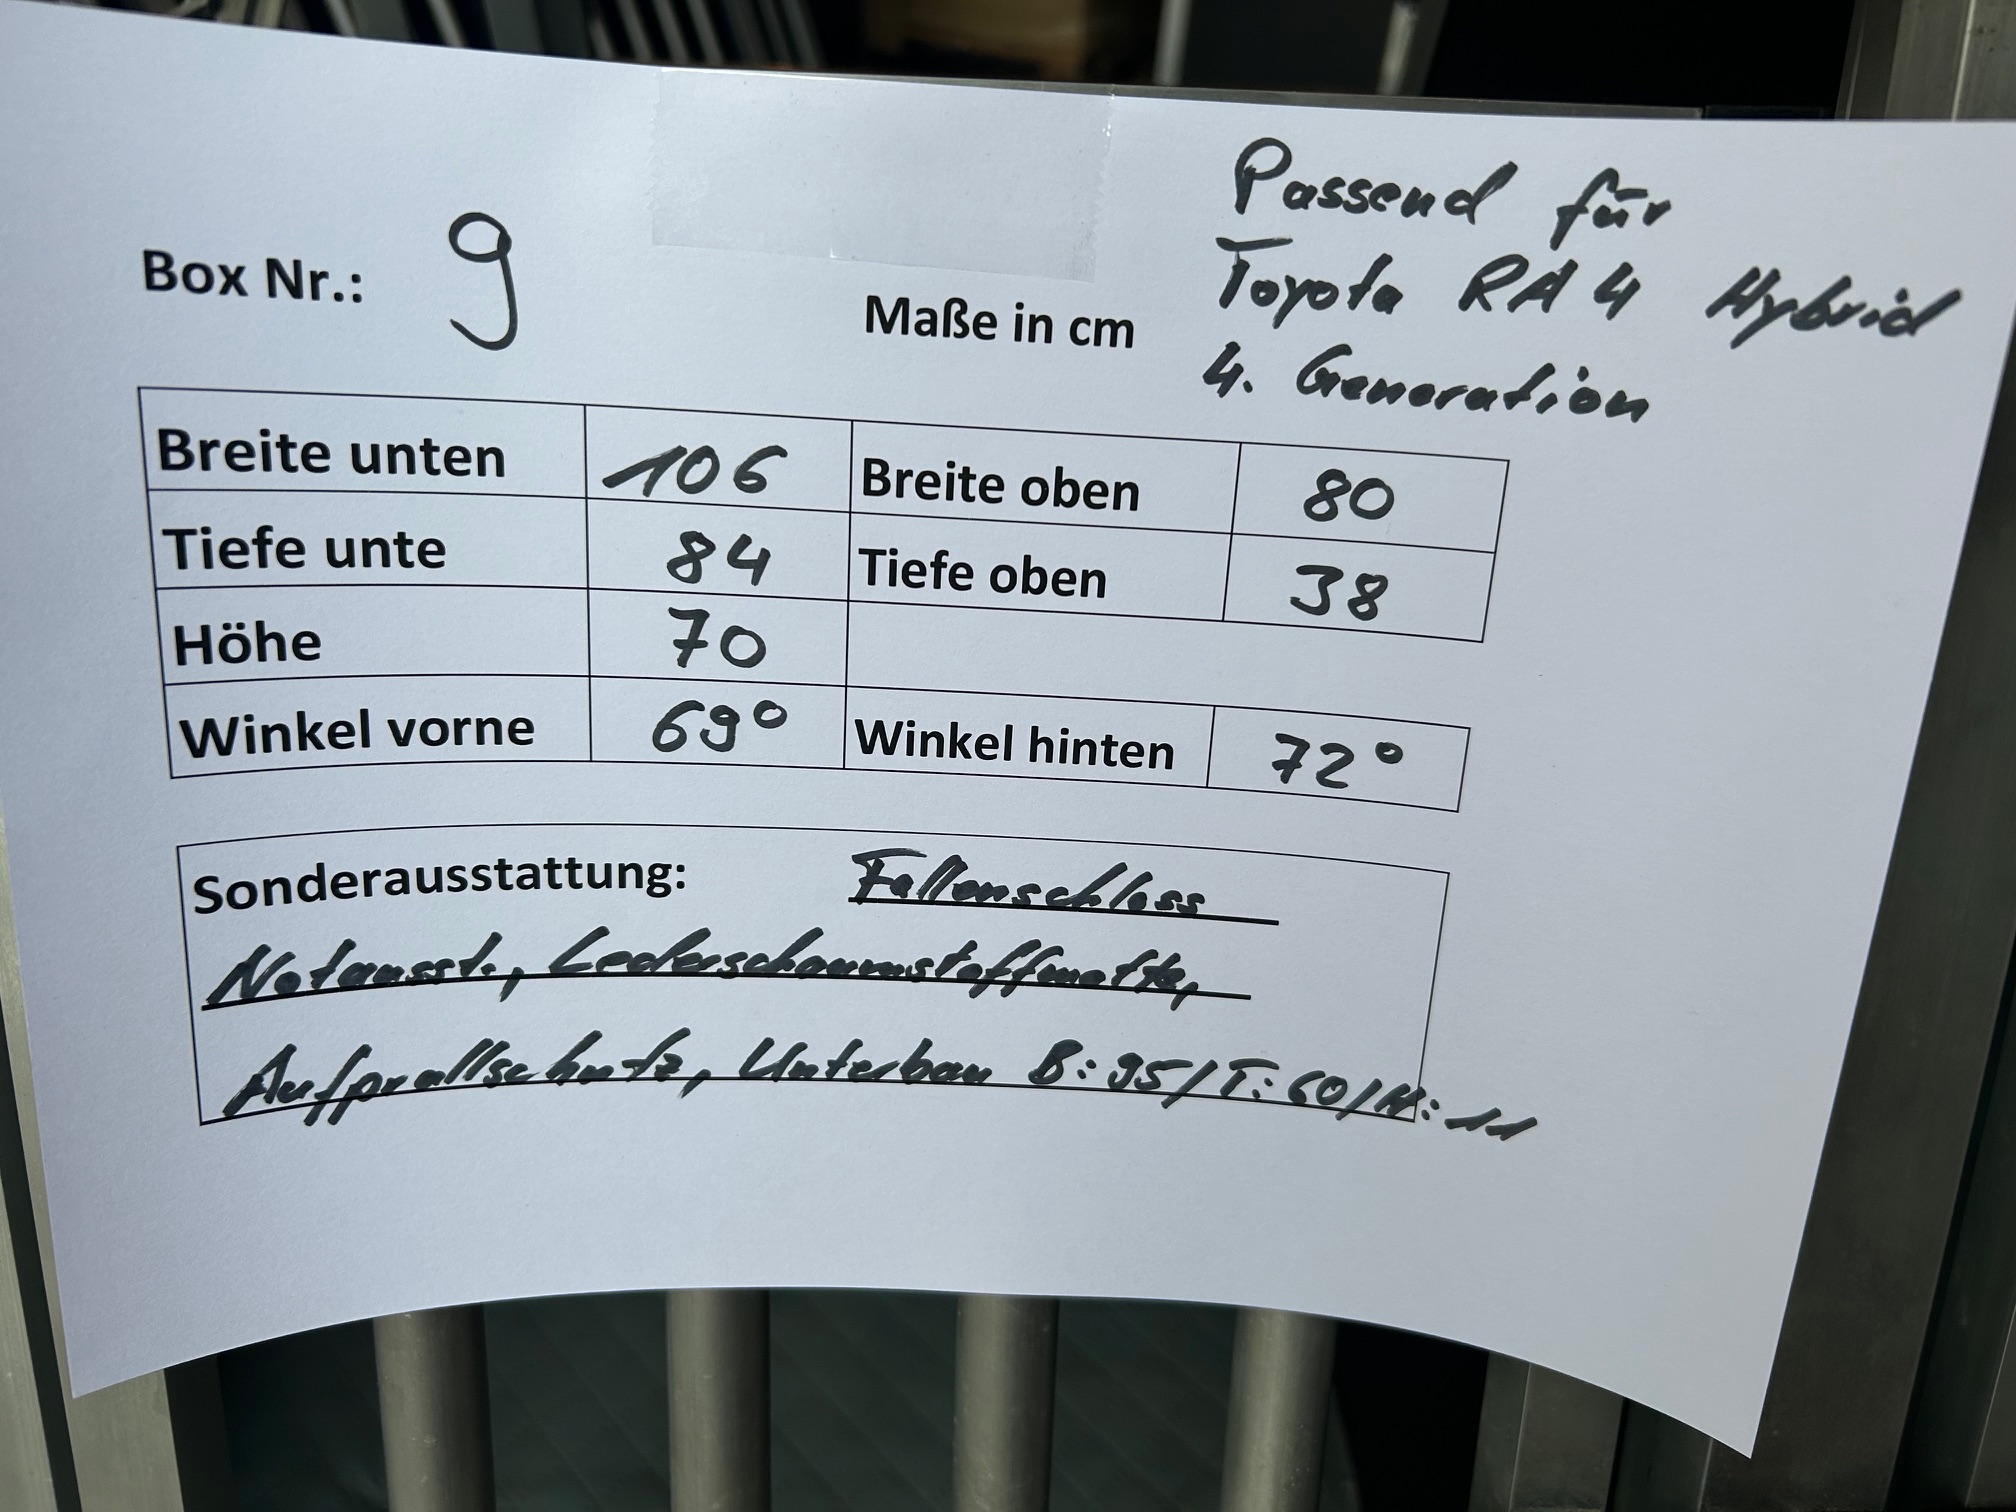 Passend für
Toyota RA4 Hybrid
4. Generation
Box Nr.: 9
Maße in cm
Breite unten 106 Breite oben 80
Tiefe unte 84 Tiefe oben 38
Höhe 70
Winkel vorne 69° Winkel hinten 72°
Sonderausstattung: Fallenschloss
Notausst., Lederschaumstoffmatte,
Aufprallschutz, Unterbau B: 95/T: 60/H: 11